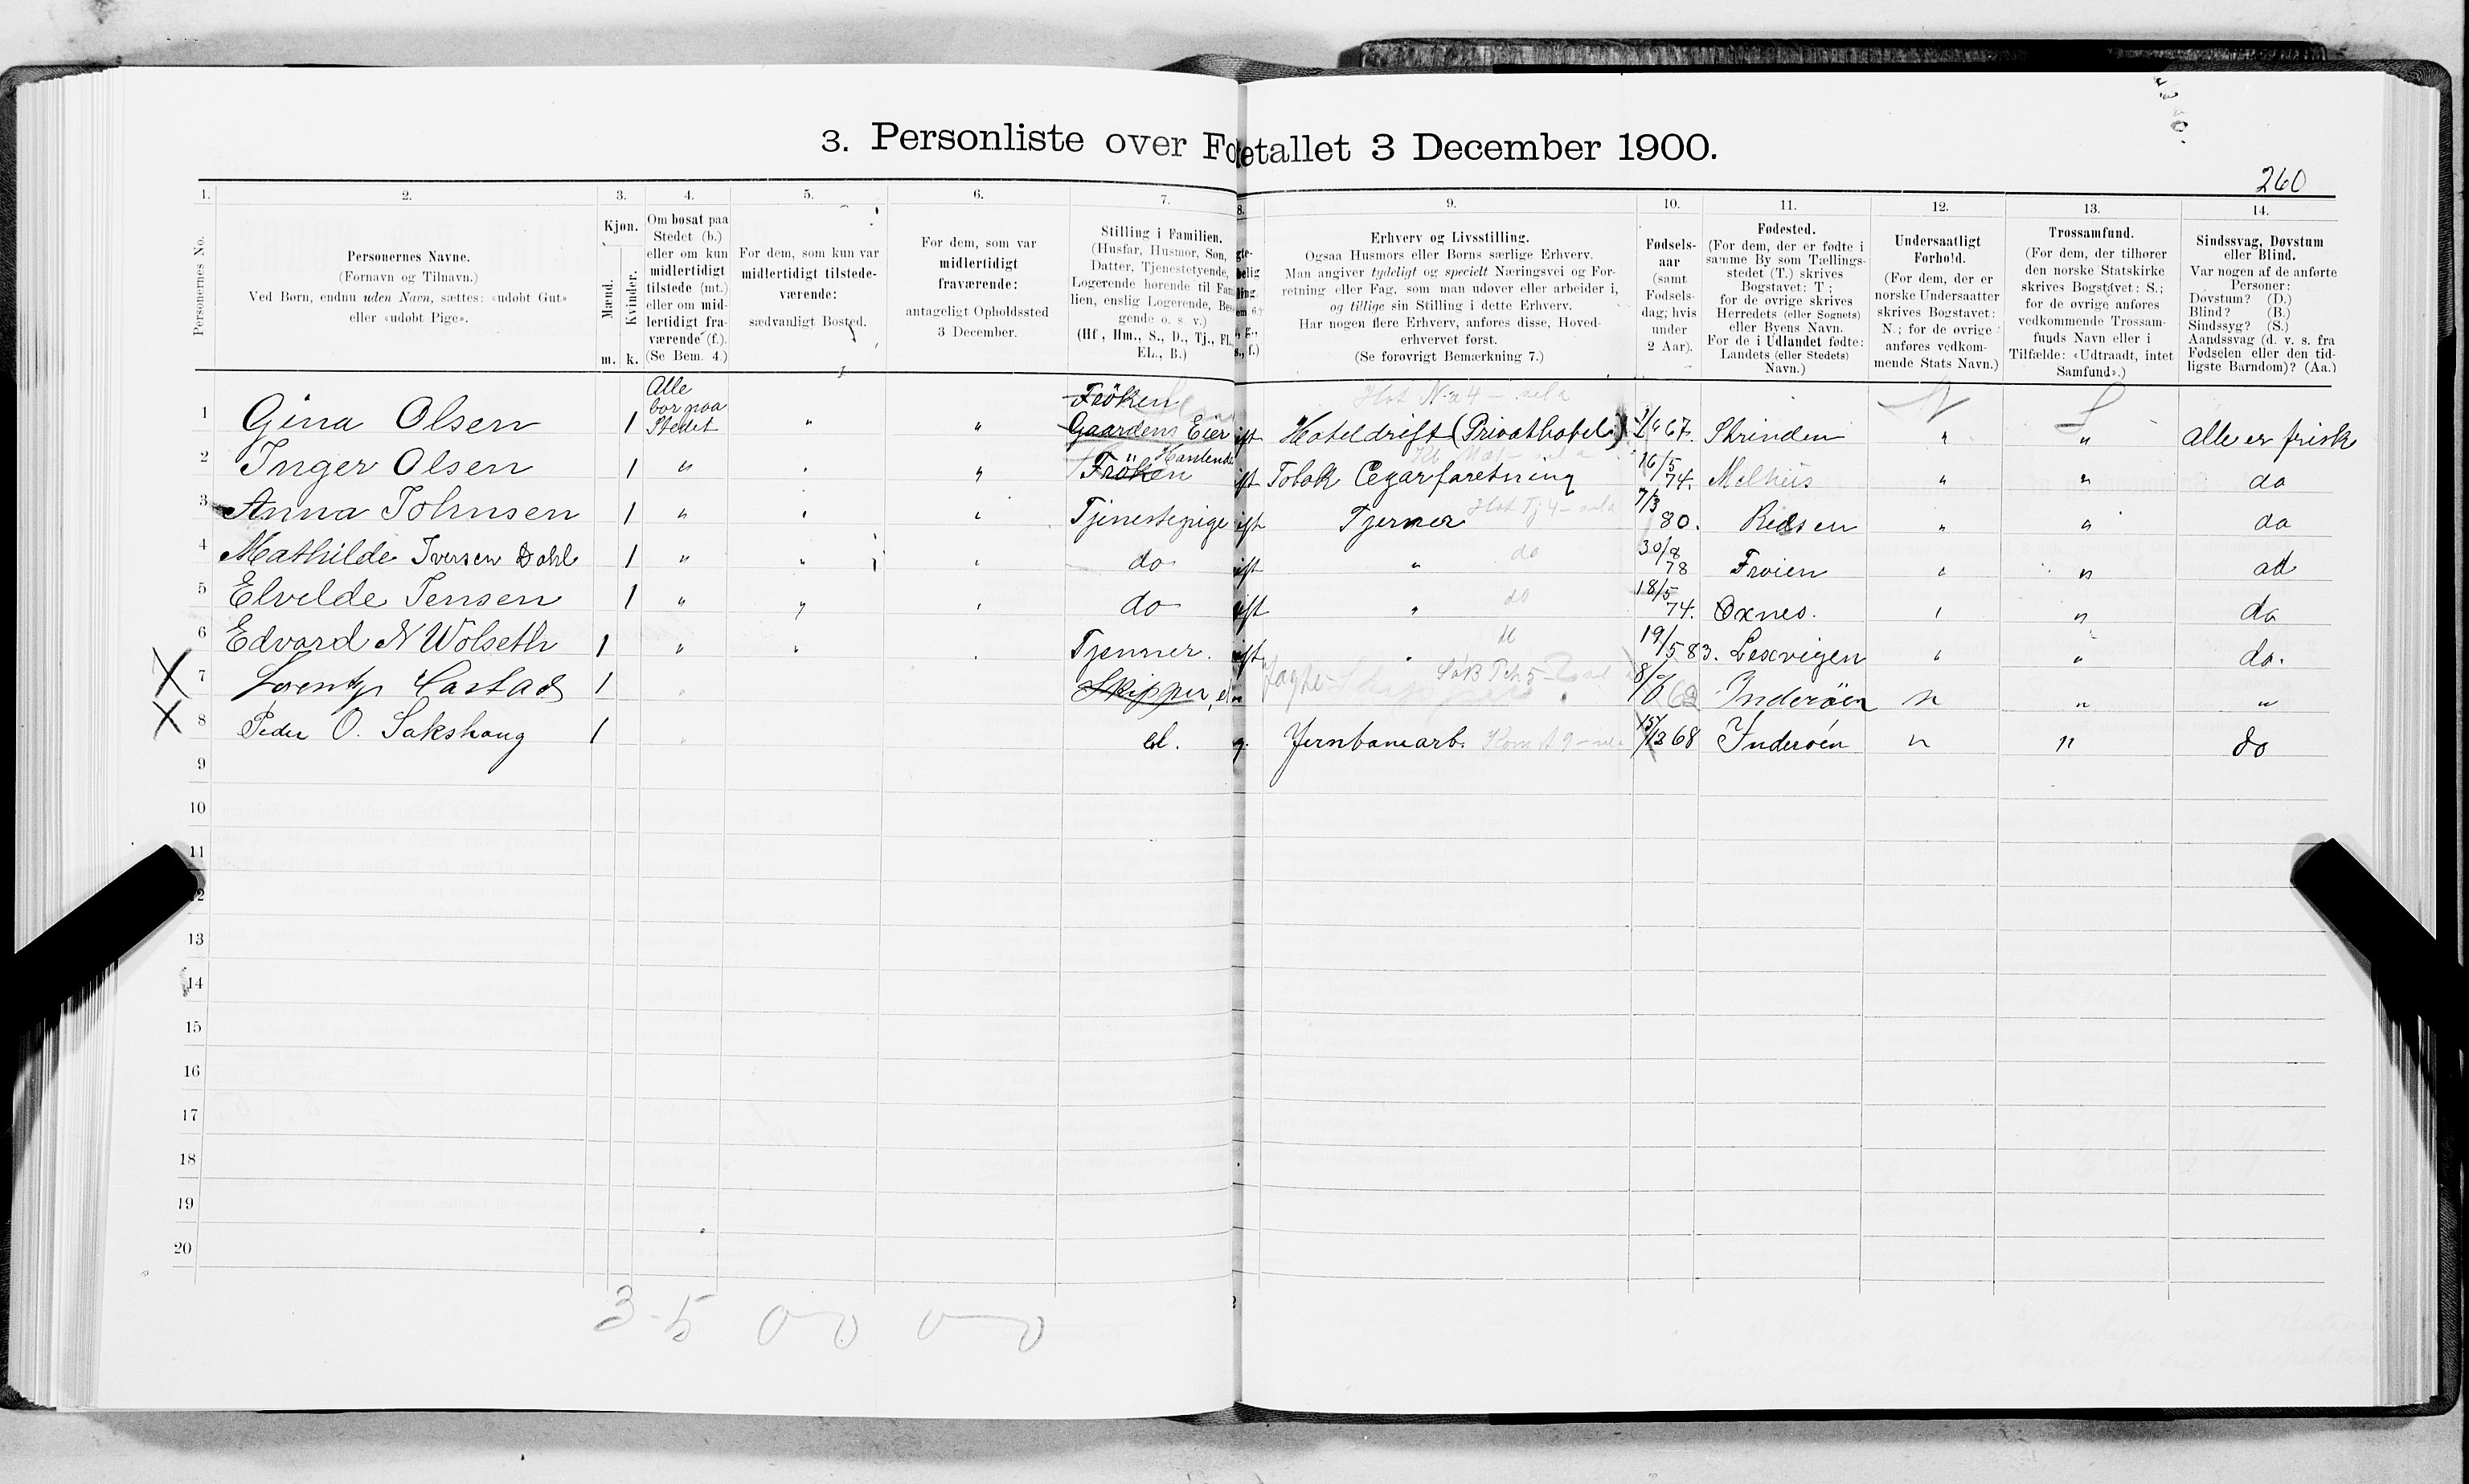 3. Personliste over Folketallet 3 December 1900.
260
1. 2. 3. 4. 5. 6. 7. 8. 9. 10. 11. 12. 13. 14.
Personernes No.
Personernes Navne.
(Fornavn og Tilnavn.)
Ved Børn, endnu uden Navn, sættes: «udøbt Gut»
eller «udøbt Pige».
Kjøn.
Mænd.
Kvinder.
m. k.
Om bosat paa
Stedet (b.)
eller om kun
midlertidigt
tilstede (mt.)
eller om mid-
lertidigt fra-
værende (f.).
(Se Bem. 4.)
For dem, som kun var
midlertidigt tilstede-
værende:
sædvanligt Bosted.
For dem, som var
midlertidigt
fraværende:
antageligt Opholdssted
3 December.
Stilling i Familien.
(Husfar, Husmor, Søn,
Datter, Tjenestetyende,
Logerende hørende til Fam
lien, enslig Logerende, Bes
gende o. s. v.)
(Hf., Hm., S., D., Tj., FL.,
EL., B.)
Erhverv og Livsstilling.
Ogsaa Husmors eller Børns særlige Erhverv.
Man angiver tydeligt og specielt Næringsvei og For-
retning eller Fag, som man udøver eller arbeider i,
og tillige sin Stilling i dette Erhverv.
Har nogen flere Erhverv, anføres disse, Hoved-
erhvervet først.
(Se forøvrigt Bemærkning 7.)
Fødsels-
aar
(samt
Fødsels-
dag; hvis
under
2 Aar).
Fødested.
(For dem, der er fødte i
samme By som Tællings-
stedet (T.) skrives
Bogstavet: T;
for de øvrige skrives
Herredets (eller Sognets)
eller Byens Navn.
For de i Udlandet fødte:
Landets (eller Stedets)
Navn.)
Undersaatligt
Forhold.
(For dem, der er
norske Undersaatter
skrives Bogstavet:
N.; for de øvrige
anføres vedkom-
mende Stats Navn.)
Trossamfund.
(For dem, der tilhører
den norske Statskirke
skrives Bogstavet: S.;
for de øvrige anføres
vedkommende Trossam-
funds Navn eller i
Tilfælde: «Udtraadt, intet
Samfund».)
Sindssvag, Døvstum
eller Blind.
Var nogen af de anførte
Personer:
Døvstum? (D.)
Blind? (B.)
Sindssyg? (S.)
Aandssvag (d. v. s. fra
Fødselen eller den tid-
ligste Barndom)? (Aa.)
1 Gina Olsen 1 Alle bor paa Stedet " " Fröken Gaardens Eier ift Hoteldrift (Privathotel) 67. Strinden N S Alle er frisk
2 Inger Olsen 1 " " Fröken ift Tobak Cegarforetning 16/5 74. Melhus " " do
3 Anna Johnsen 1 " Tjenestepige ift Tjener 7/3 80. " " do
4 Mathilde Iversen Dahl 1 " " do ift " do 30/8 78 Froien " do
5 Elvelde Jensen 1 " " do ift " do 18/5 74. Oxnes. " do
6 Edvard N Wolseth 1 " " Tjenner. ift 19/5 83. Lexvigen " " do.
7 1 Skipper, el 62 Inderöen n " "
8 Peder O. Sakshaug 1 el. g. Jernbanearb. 15/12 68 Inderöen n " do
9
10
11
12
13
14
15
16
17
18
19
20
3 - 5 0 0 0 0